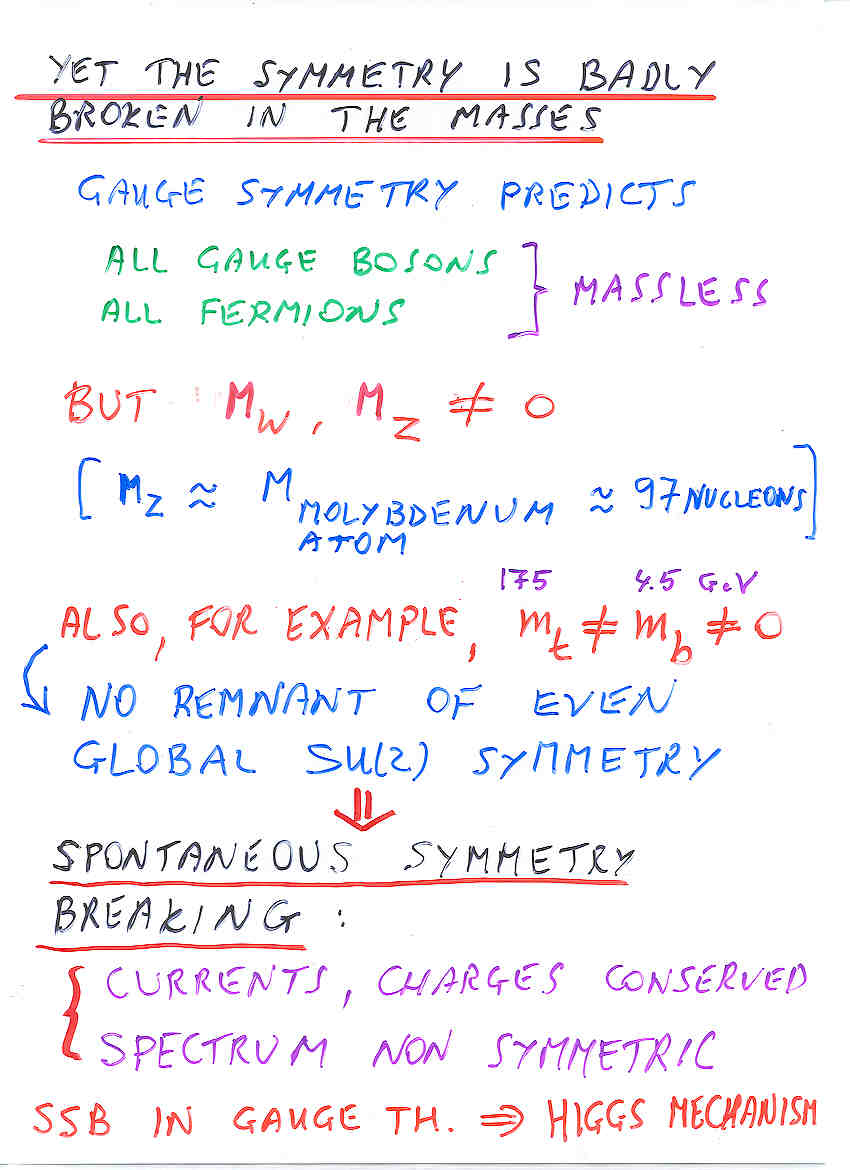 YET THE SYMMETRY IS BADLY
BROKEN IN THE MASSES
GAUGE SYMMETRY PREDICTS
ALL GAUGE BOSONS
ALL FERMIONS } MASSLESS
BUT M_W, M_Z ≠ 0
[ M_Z ≈ M_MOLYBDENUM ATOM ≈ 97 NUCLEONS ]
175 4.5 GeV
ALSO, FOR EXAMPLE, m_t ≠ m_b ≠ 0
↳ NO REMNANT OF EVEN
GLOBAL SU(2) SYMMETRY
⇓
SPONTANEOUS SYMMETRY
BREAKING :
{ CURRENTS, CHARGES CONSERVED
SPECTRUM NON SYMMETRIC
SSB IN GAUGE TH. ⇒ HIGGS MECHANISM